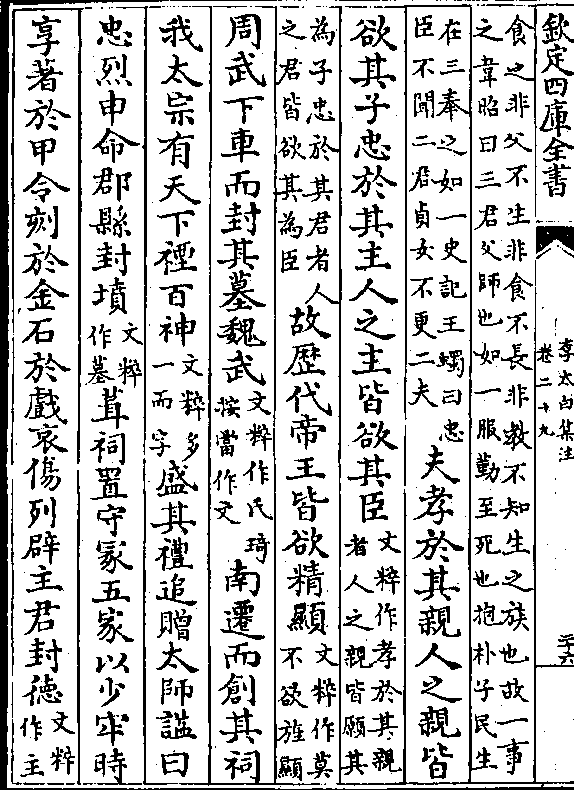 欽定四庫全書
李太白集注
卷二十九
二十六
食之非父不生非食不長非教不知生之族也故一事
之韋昭曰三君父師也如一服勤至死也抱朴子民生
在三奉之如一史記王蠋曰忠
臣不間二君貞女不更二夫
夫孝於其親人之親皆
欲其子忠於其主人之主皆欲其臣
文粹作孝於其親
者人之親皆願其
為子忠於其君者人
之君皆欲其為臣
故歴代帝王皆欲精顯
文粹作莫
不欲旌顯
周武下車而封其墓魏武
文粹作氏琦
按當作文
南遷而創其祠
我太宗有天下禋百神
文粹多
一而字
盛其禮追贈太師諡曰
忠烈申命郡縣封墳
文粹
作墓
葺祠置守冢五家以少牢時
享著於甲令刻於金石於戲哀傷列辟主君封德
文粹
作主